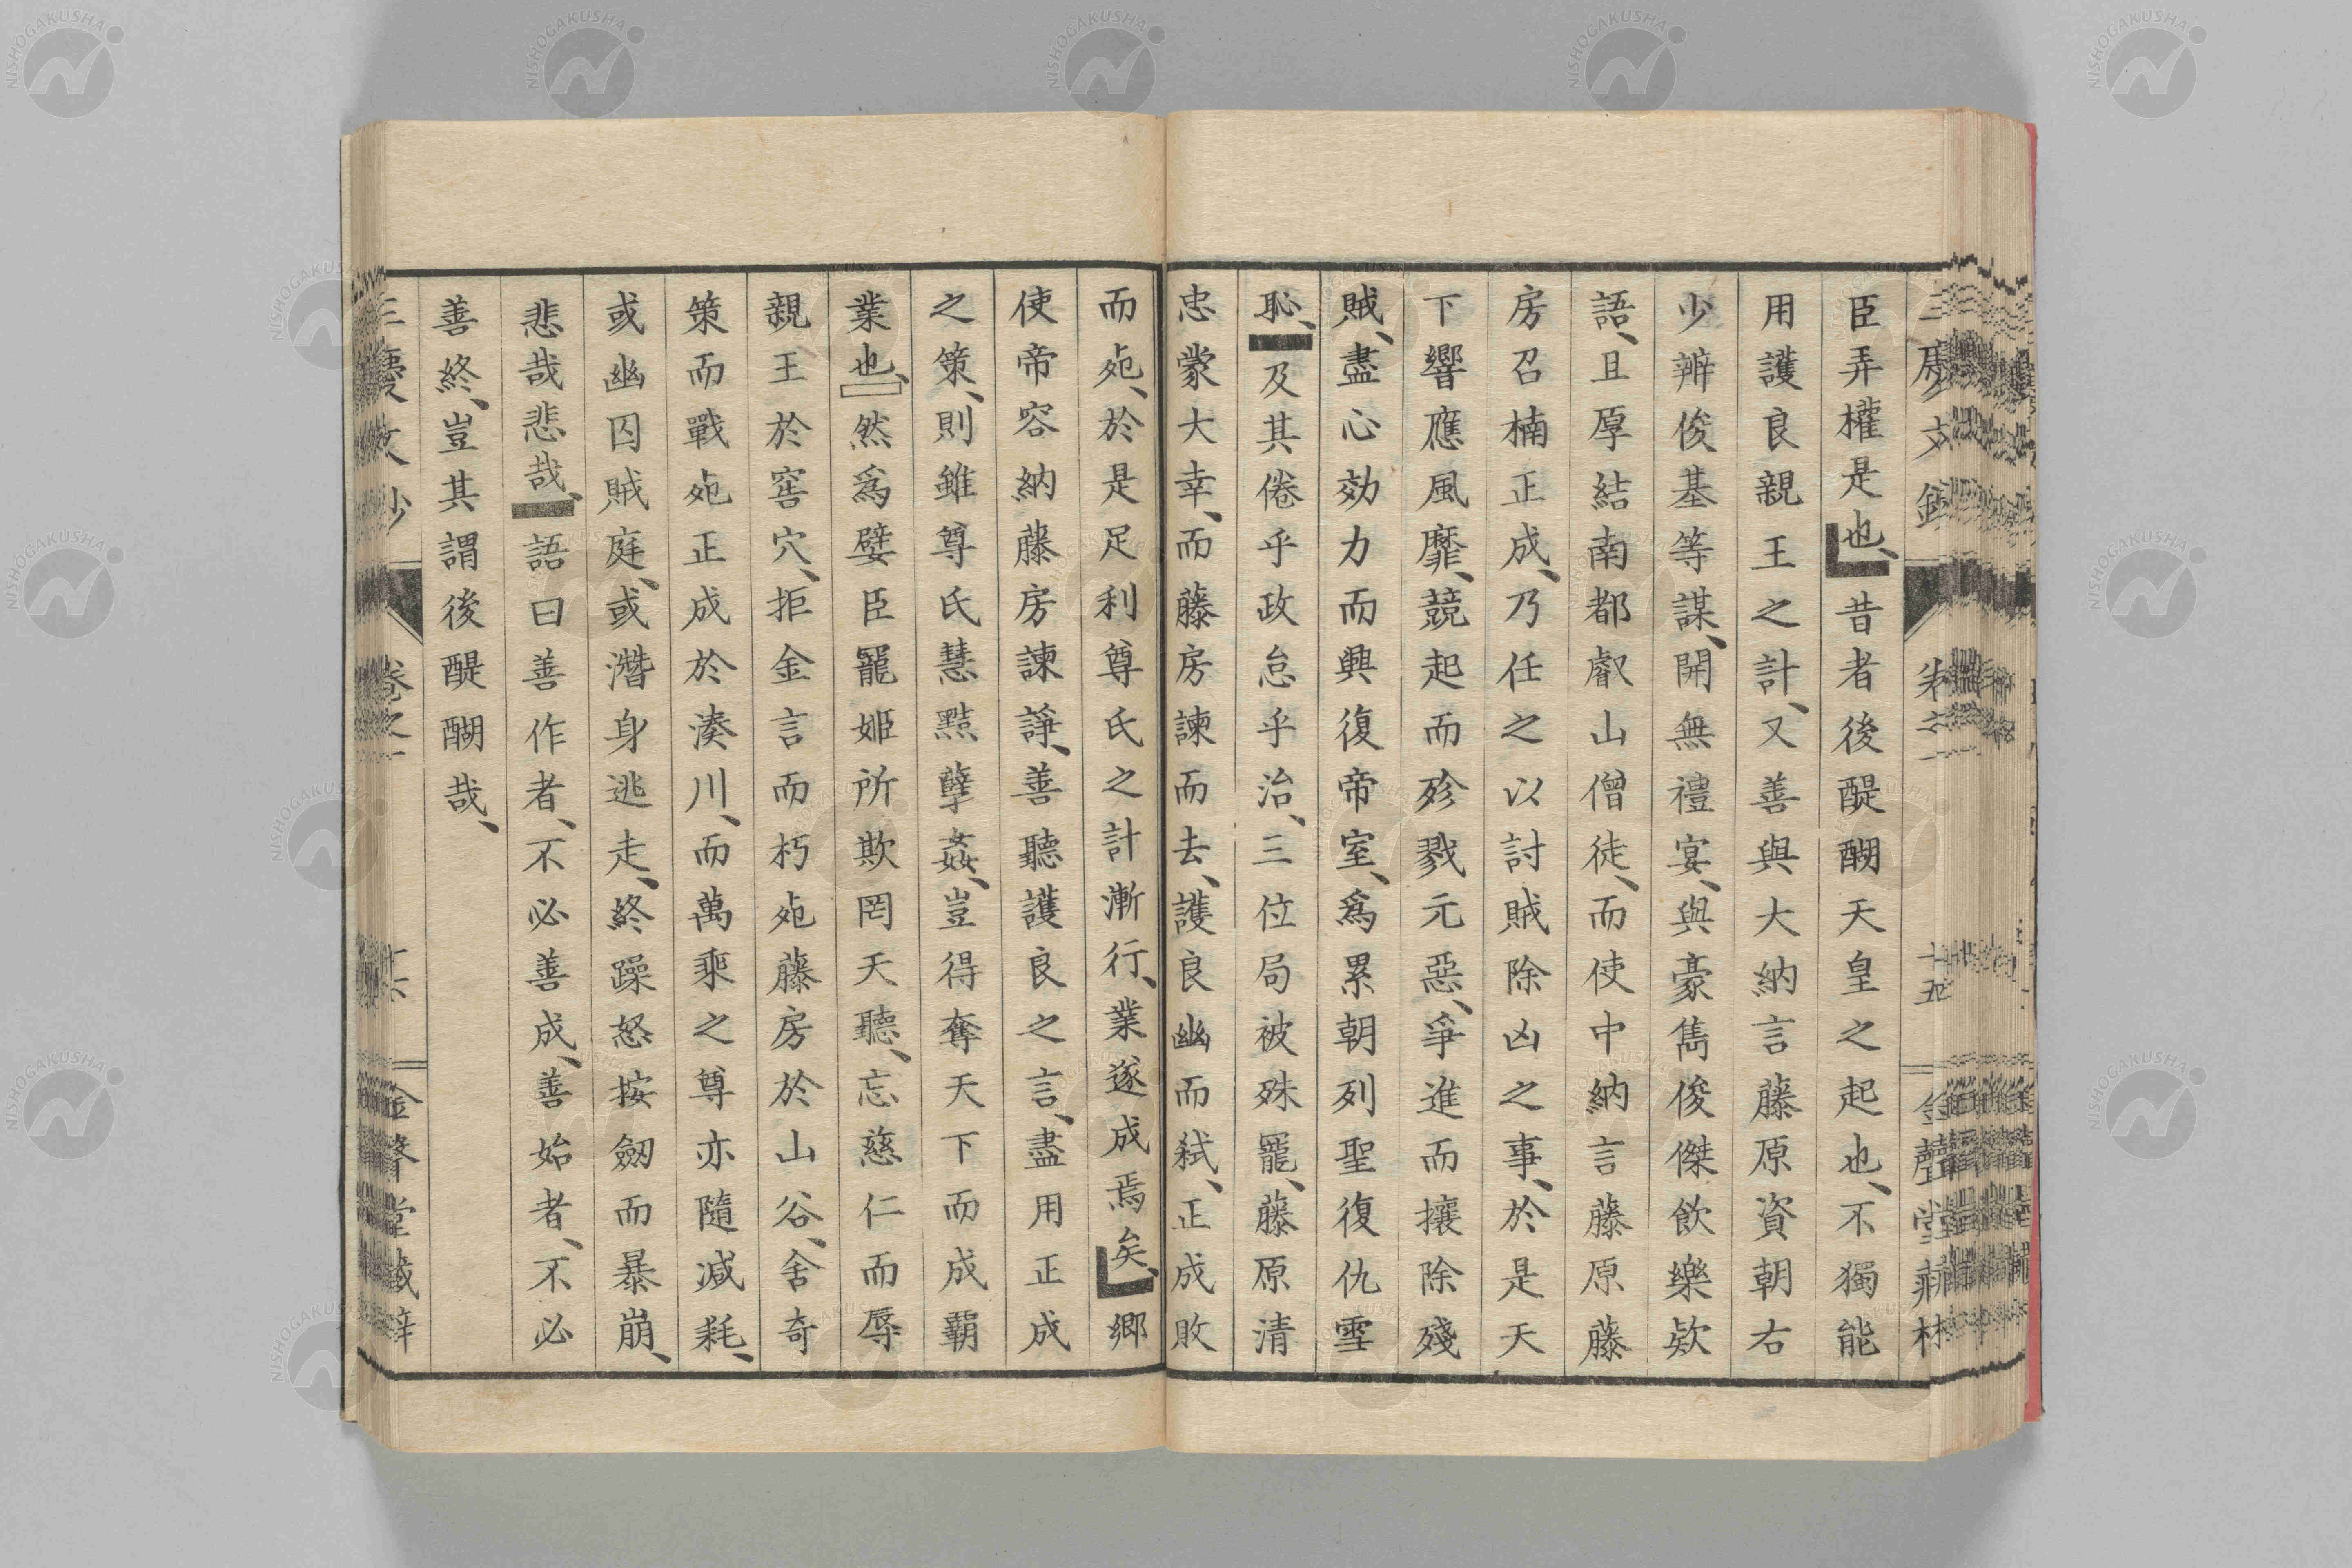 臣弄權是也、昔者後醍醐天皇之起也、不獨能
用護良親王之計、又善與大納言藤原資朝右
少辨俊基等謀、開無禮宴、與豪雋俊傑飲樂欵
語、且厚結南都叡山僧徒、而使中納言藤原藤
房召楠正成、乃任之以討賊除凶之事、於是天
下響應風靡、競起而殄戮元惡、爭進而攘除殘
賊、盡心効力而興復帝室、爲累朝列聖復仇雪
恥、及其倦乎政怠乎治、三位局被殊寵、藤原清
忠蒙大幸、而藤房諫而去、護良幽而弑、正成敗
而𣦸、於是足利尊氏之計漸行、業遂成焉矣、鄉
使帝容納藤房諫諍、善聽護良之言、盡用正成
之策、則雖尊氏慧黠孽姦、豈得奪天下而成覇
業也、然爲嬖臣寵姬所欺罔天聽、忘慈仁而辱
親王於窖穴、拒金言而朽𣦸藤房於山谷、舍奇
策而戰𣦸正成於湊川、而萬乘之尊亦隨減耗、
或幽囚賊庭、或潛身逃走、終躁怒按劒而暴崩、
悲哉悲哉、語曰善作者、不必善成、善始者、不必
善終、豈其謂後醍醐哉、
十五
NISHOGAKUSHA